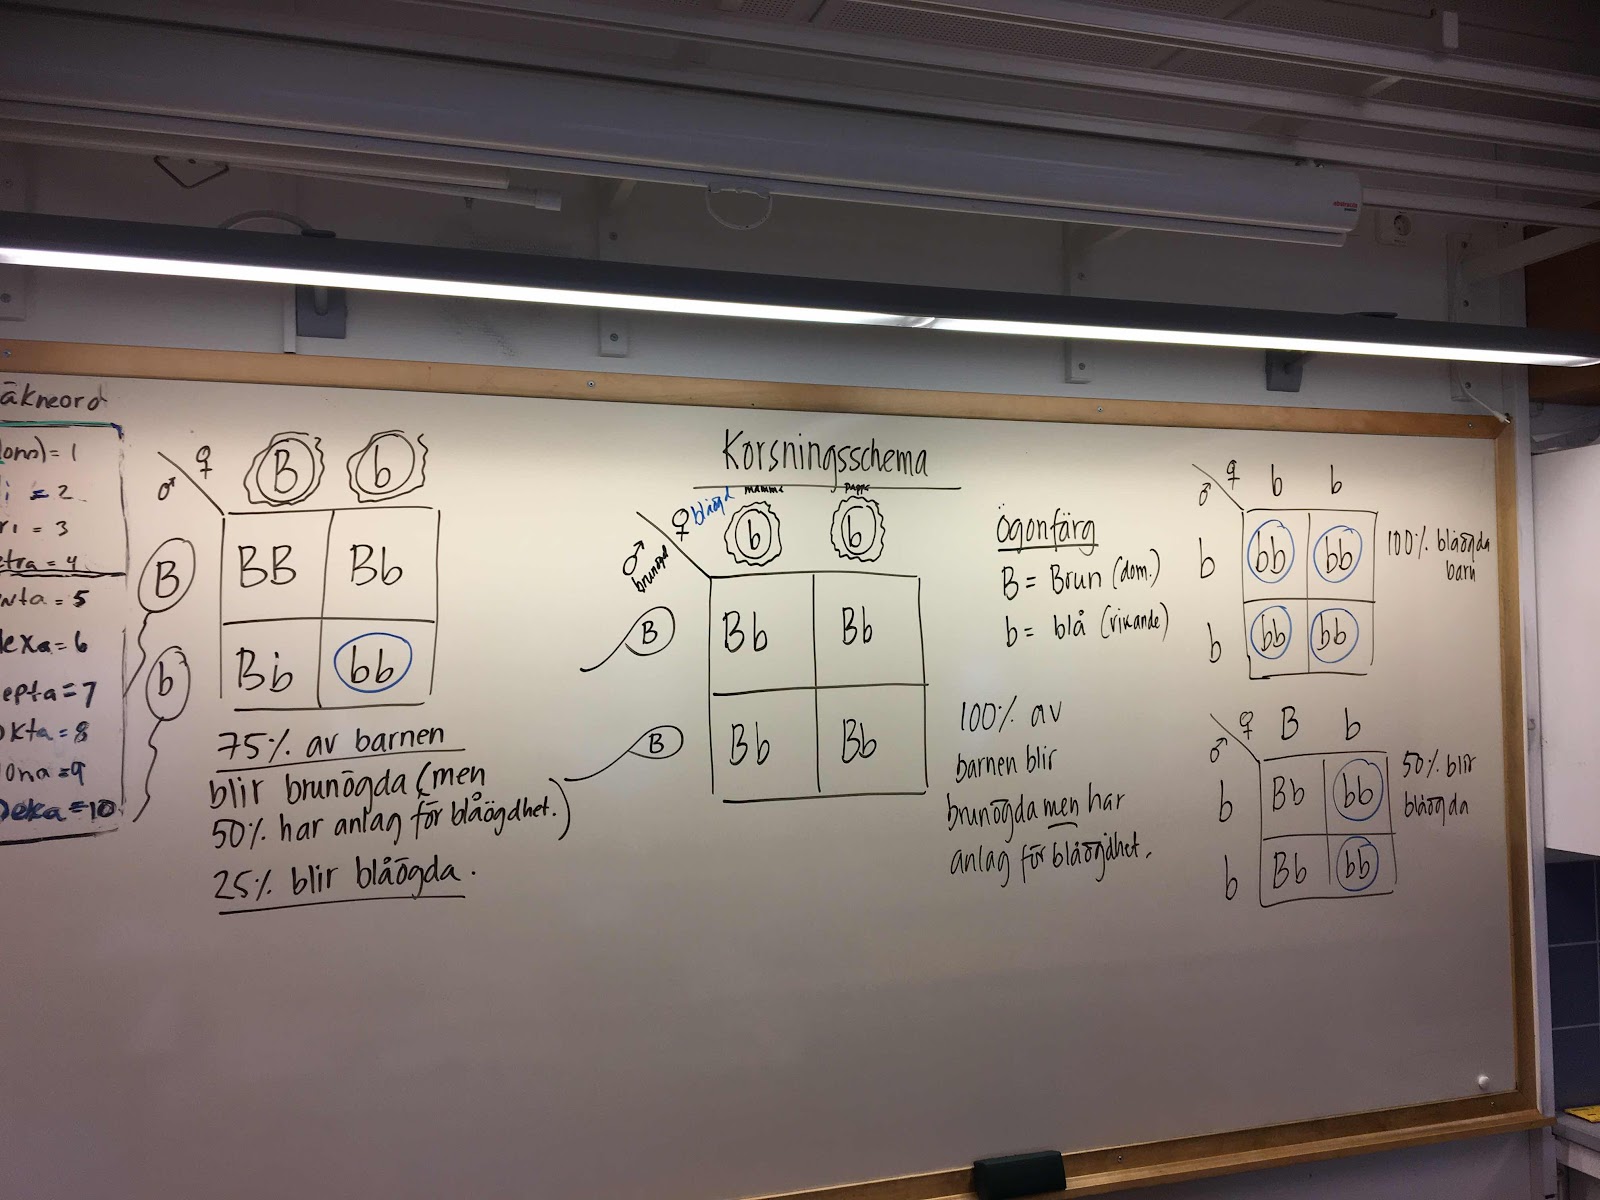 äkneord
= 1
= 2
= 3
etra = 4
nta = 5
exa = 6
epta = 7
okta = 8
ona = 9
Deka = 10
♀ B b
♂
B BB Bb
b Bb bb
75% av barnen
blir brunögda (men
50% har anlag för blåögdhet.)
25% blir blåögda.
Korsningsschema
mamma pappa
♀ blåögd b b
♂ brunögd
B Bb Bb
B Bb Bb
Ögonfärg
B = Brun (dom.)
b = blå (vikande)
100% av
barnen blir
brunögda men har
anlag för blåögdhet.
♀ b b
♂
b bb bb
b bb bb
100% blåögda
barn
♀ B b
♂
b Bb bb
b Bb bb
50% blir
blåögda